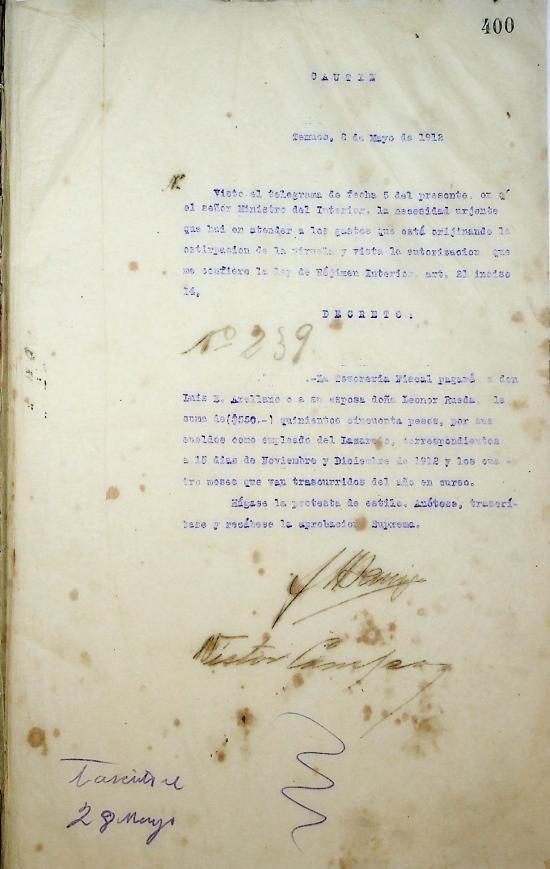 400
CAUTIN
Temuco, 2 de Mayo de 1912
Nº
Visto el telegrama de fecha 5 del presente, en qé
el señor Ministro del Interior, la necesidad urjente
que hai en atender a los gastos que está orijinando la
estirpacion de la viruela y vista la autorizacion que
me confiere la ley de Réjimen Interior, art. 21 inciso
14,
DECRETO:
Nº 239
.-La Tesorería Fiscal pagará a don
Luis E. Arellano o a su esposa doña Leonor Rueda, la
suma de ($550.-) quinientos cincuenta pesos, por sus
sueldos como empleado del Lazareto, correspondientes
a 15 dias de Noviembre y Diciembre de 1912 y los cua-
tro meses que van trascurridos del año en curso.
Hágase la protesta de estilo. Anótese, trascrí-
base y recábese la aprobacion Suprema.
Nestor Campos
2 Mayo